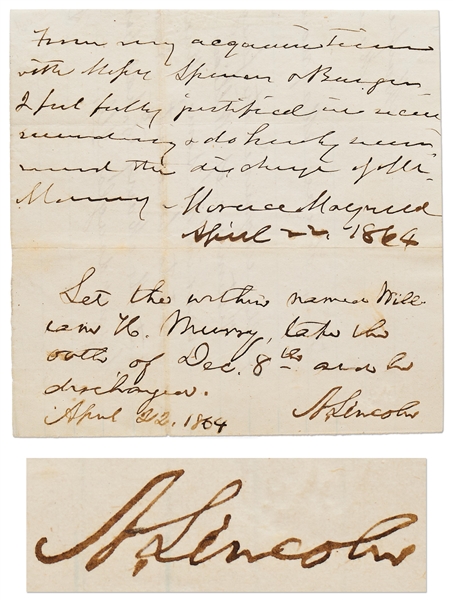 From my acquaintance
with Messrs Spencer & Burgin
I feel fully justified in recom
mending & do hereby recom
mend the discharge of Mr
Murry - Horace Maynard
April 22, 1864
Let the within named Will-
iam H. Murry, take the
oath of Dec. 8th and be
discharged.
April 22, 1864 A. Lincoln
A. Lincoln